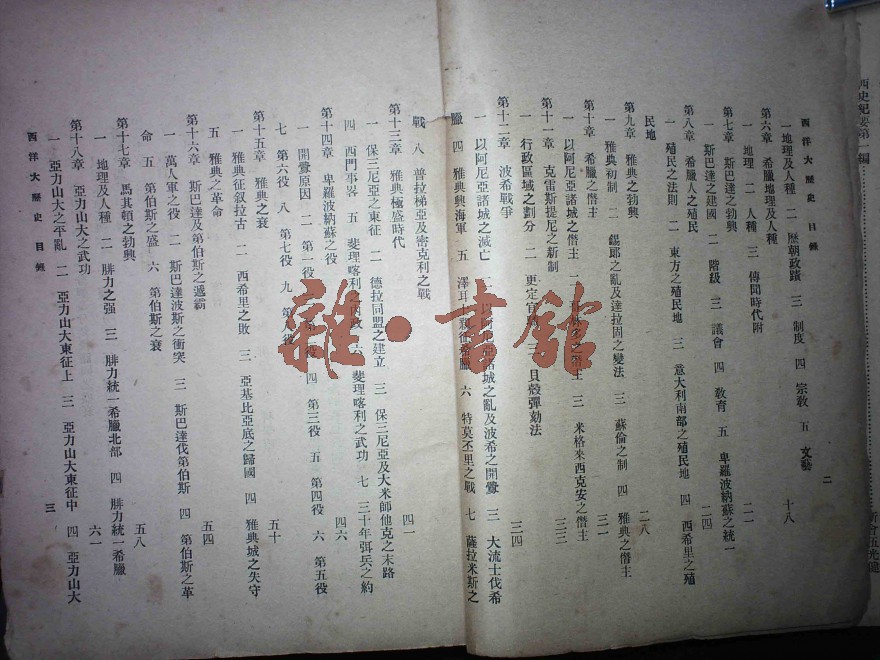 西史紀要第一編
西洋大歷史 目錄
二
一 地理及人種 二 歷朝政蹟 三 制度 四 宗教 五 文藝
十八
第六章 希臘地理及人種
一 地理 二 人種 三 傳聞時代附
二一
第七章 斯巴達之勃興
一 斯巴達之建國 二 階級 三 議會 四 敎育 五 卑羅波納蘇之統一
二四
第八章 希臘人之殖民
一 殖民之法則 二 東方之殖民地 三 意大利南部之殖民地 四 西希里之殖
民地
二八
第九章 雅典之勃興
一 雅典初制 二 錫耶之亂及達拉固之變法 三 蘇倫之制 四 雅典之僭主
三一
第十章 希臘之僭主
一 以阿尼亞諸城之僭主 三 米格來西克安之僭主
三三
第十一章 克雷斯提尼之新制
一 行政區域之劃分 二 更定官 三 貝殼彈劾法
三四
第十二章 波希戰爭
一 以阿尼亞諸城之滅亡 二 諸城之亂及波希之開釁 三 大流士伐希
臘 四 雅典興海軍 五 澤耳 親征希臘 六 特莫丕里之戰 七 薩拉米斯之
戰 八 普拉梯亞及密克利之戰
四一
第十三章 雅典極盛時代
一 保三尼亞之東征 二 德拉同盟之建立 三 保三尼亞及大米師他克之末路
四 西門事畧 五 斐理喀利之內政 六 斐理喀利之武功 七 三十年弭兵之約
四六
第十四章 卑羅波納蘇之役
一 開釁原因 二 第一役 三 第二役 四 第三役 五 第四役 六 第五役
七 第六役 八 第七役 九 第八役
五十
第十五章 雅典之衰
一 雅典征敍拉古 二 西希里之敗 三 亞基比亞底之歸國 四 雅典城之失守
五 雅典之革命
五四
第十六章 斯巴達及第伯斯之遞霸
一 萬人軍之役 二 斯巴達波斯之衝突 三 斯巴達伐第伯斯 四 第伯斯之革
命 五 第伯斯之盛 六 第伯斯之衰
五八
第十七章 馬其頓之勃興
一 地理及人種 二 腓力之强 三 腓力統一希臘北部 四 腓力統一希臘
六一
第十八章 亞力山大之武功
一 亞力山大之平亂 二 亞力山大東征上 三 亞力山大東征中 四 亞力山大
西洋大歷史 目錄
三
雜·書館